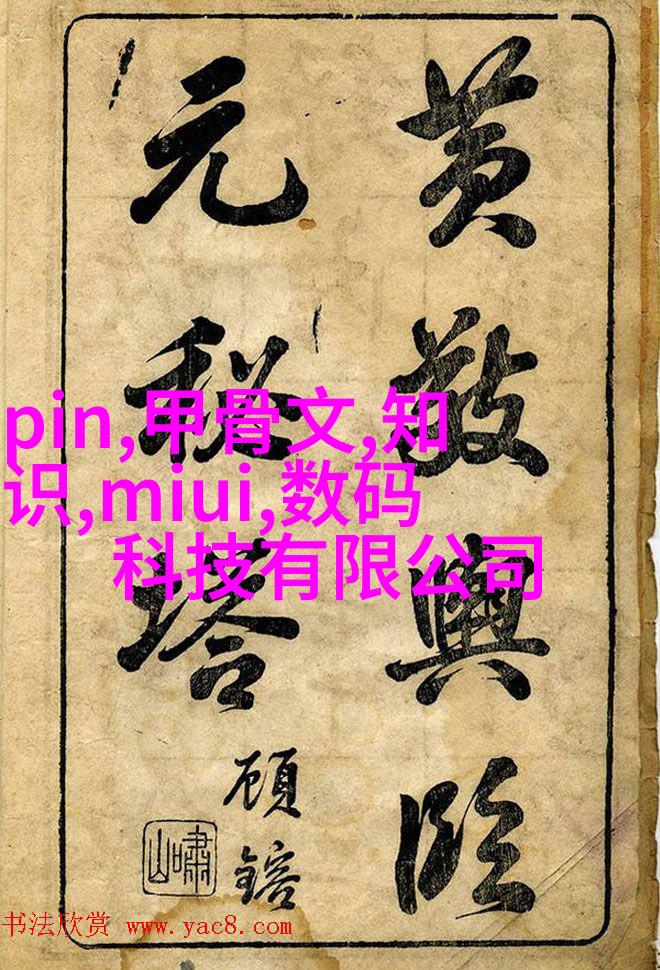 黄敬輿臨
元秘塔
顾鎔
嘯山
pin,甲骨文,知
识,miui,数码
科技有限公司
书法欣赏 www.yac8.com